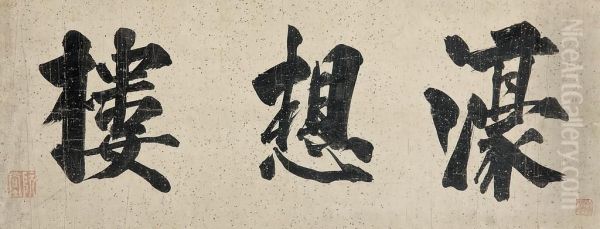 濠想樓
NiceArtGallery.com